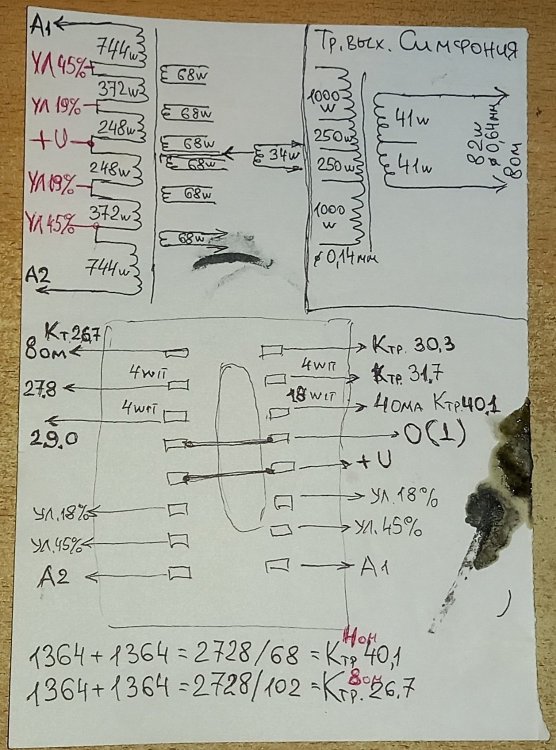 A1
744w
УЛ 45%
372w
УЛ 19%
248w
+U
248w
УЛ 19%
372w
УЛ 45%
744w
A2
68w
68w
68w
68w
34w
68w
68w
Тр. вых. Симфония
1000
w
250w
250w
1000
w
ø 0,14мм
41w
41w
82w
ø 0,64мм
8ом
Кт 26,7
8ом
4wп
27.8
4wп
29.0
Ул. 18%
Ул. 45%
A2
Ктр. 30,3
4wп
Ктр. 31,7
18wп
4ома Ктр 40,1
0(1)
+U
Ул. 18%
Ул. 45%
A1
1364 + 1364 = 2728/68 = Ктр 40,1
4ом
1364 + 1364 = 2728/102 = Ктр. 26.7
8ом